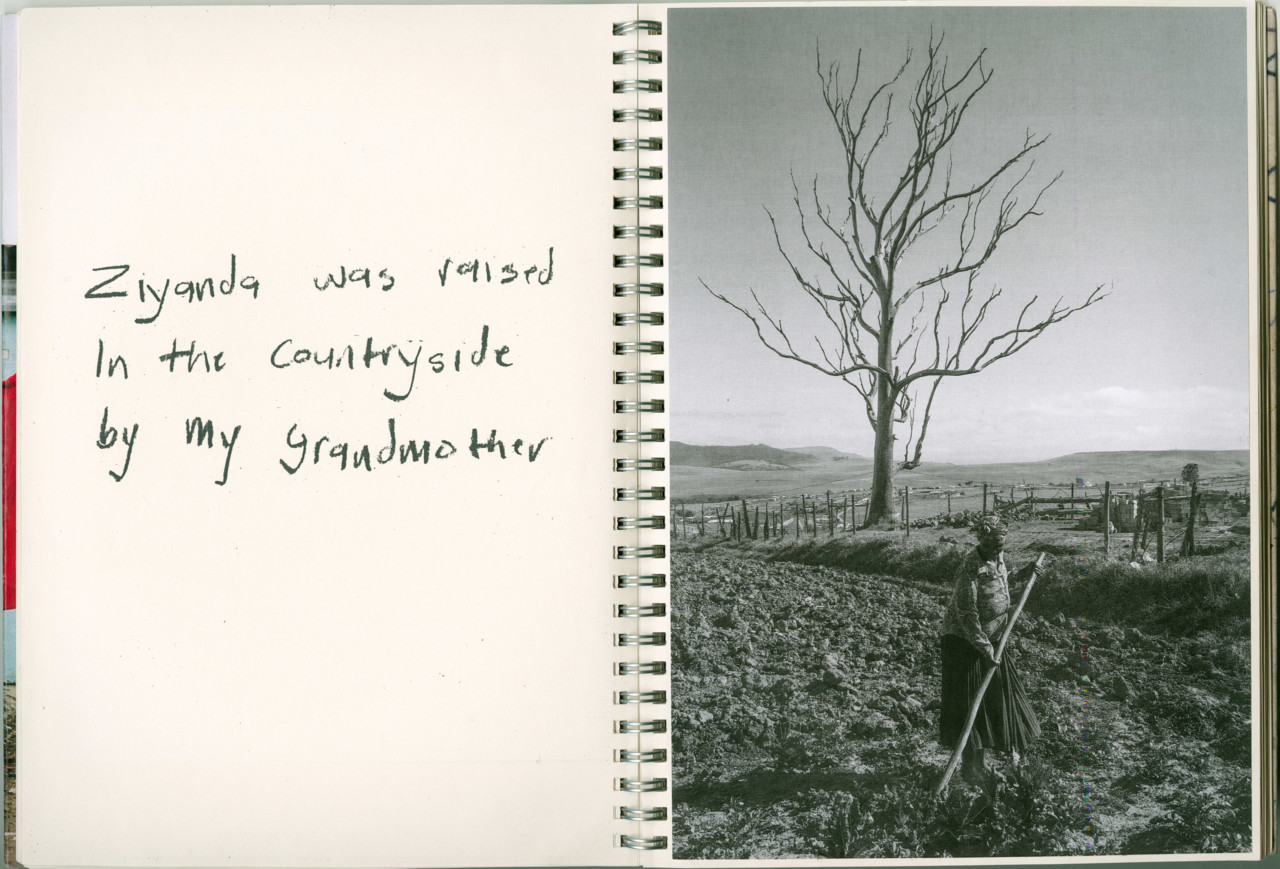 Ziyanda was raised
In the Countryside
by my grandmother